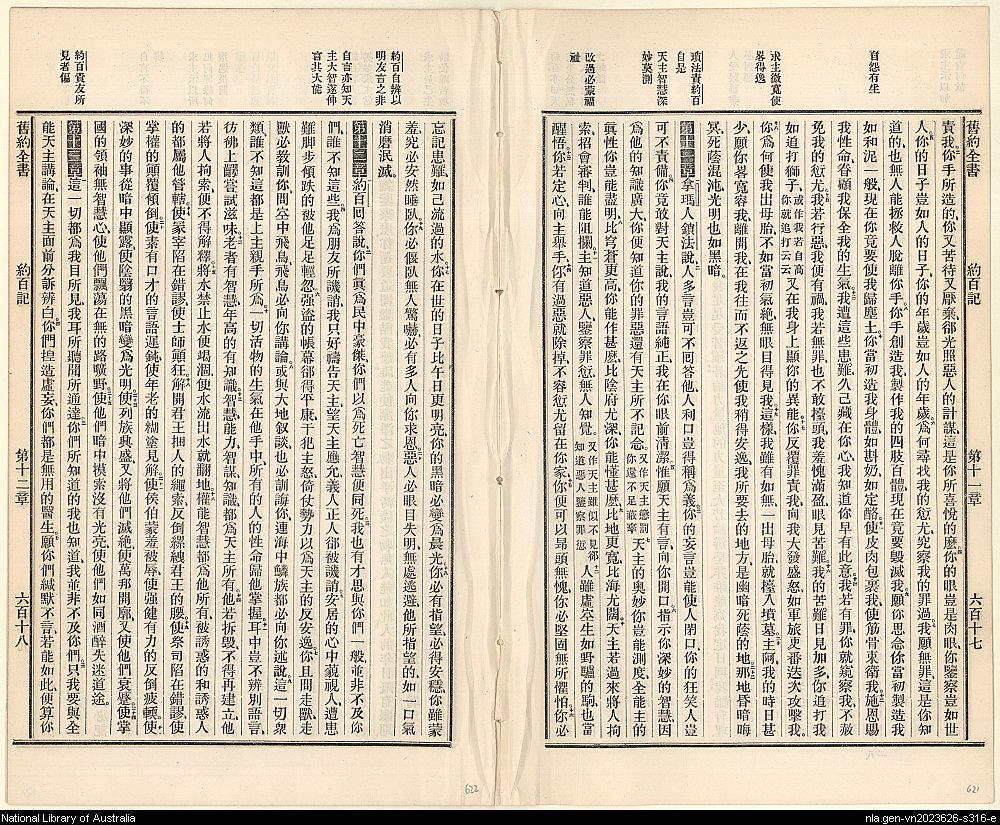 官怨有生
求主微寬使
畧得逸
瑣法責約百
自是
天主智慧深
妙莫測
改過必蒙福
祉
舊約全書 約百記 第十一章 六百十七
責我你手所造的你又苦待又厭棄郤光照惡人的計謀這是你所喜悅的麼你的眼豈是肉眼你鑒察豈如世
人你的日子豈如人的日子你的年歲豈如人的年歲爲何尋我的愆尤究察我的罪過我願無罪這是你知
道的也無人能拯救人脫離你手你手創造我製作我的四肢百體現在竟要毀滅我願你思念你當初製造我
如和泥一般現在你竟要使我歸塵土你當初造我身體如斟奶如定酪使皮肉包裹我使筋骨束衛我施恩賜
我性命眷顧我保全我的生氣我遭這些患難久已藏在你心我知道你早有此意我若有罪你就窺察我不赦
免我的愆尤我若行惡我便有禍我若無罪也不敢擡頭我羞愧滿盈眼見苦難我的苦難日見加多你追打我
如追打獅子或作我若自高你就追打云云又在我身上顯你的異能你反覆罪責我向我大發盛怒如軍旅更番迭次攻擊我
你爲何使我出母胎不如當初氣絶無眼目得見我這樣我雖有如無一出母胎就擡入墳墓主阿我的時日甚
少願你畧寬容我離開我在我往而不返之先使我稍得安逸我所要去的地方是幽暗死陰的地那地昏暗晦
冥死陰混沌光明也如黑暗
第十一章拿瑪人鎖法說人多言豈可不囘答他人利口豈得稱爲義你的妄言豈能使人閉口你的狂笑人豈
可不責備你你竟敢對天主說我的言語純正我在你眼前清潔惟願天主有言向你開口指示你深妙的智慧因
爲他的知識廣大你便能知道你的罪惡還有天主所不記念又作天主懲罰你還不足戳辜天主的奧妙你豈能測度全能主的
眞性你豈能盡明比穹蒼更高你能作甚麽比陰府尤深你能懂甚麽比地更寬比海尤闊天主若過來將人拘
索招會審判誰能阻攔主知道惡人鑒察罪愆無人知覺又作天主雖似不見郤知道惡人鑒察罪愆人雖虛空生如野驢的駒也當
醒悟你若定心向主舉手你有過惡就除掉不容愆尤留在你家你便可以昻頭無愧你必堅固無所懼怕你必
621
約百自辨以
明友言之非
自言亦知天
主大智遂伸
言其大能
約百責友所
見者偏
忘記患難如已流過的水你在世的日子比午日更明亮你的黑暗必變爲晨光你必有指望必得安穩你雖蒙
羞究必安然睡臥你必偃臥無人驚嚇必有多人向你求恩惡人必眼目失明無處逃避他所指望的如一口氣
消磨泯滅
第十二章約百囘答說你們眞爲民中豪傑你們以爲死亡智慧便同死我也有才思與你們一般並非不及你
們誰不知道這些我爲朋友所譏誚我只好禱告天主望天主應允義人正人郤被譏誚安居的心中藐視人遭患
難脚步傾跌的被他足足輕忽强盜的帳幕郤得平康干犯主怒倚仗勢力以爲天主的反安逸你且問走獸走
獸必教訓你問空中飛鳥飛鳥必向你講論或與大地叙談也必訓誨你連海中鱗族都必向你述說這一切衆
類誰不知這都是上主親手所爲一切活物的生氣在他手中所有的人的性命歸他掌握耳中豈不辨別語言
彷彿上齶嘗試滋味老者有智慧年高的有知識智慧能力智謀知識都爲天主所有他若拆毀不得再建立他
若將人拘索便不得解釋將水禁止水便竭涸使水流出水就翻地權能智慧都爲他所有被誘惑的和誘惑人
的都屬他管轄使冢宰陷在錯謬使士師顚狂解開君王捆人的繩索反倒縲綫君王的腰使祭司陷在錯謬使
掌權的顚覆傾倒使素有口才的言語遲鈍使年老的糊塗見解使侯伯蒙羞被辱使强健有力的反倒疲輭使
深妙的事從暗中顯露使陰翳的黑暗變爲光明使列族興盛又將他們滅絶使萬邦開廓又使他們衰蹙使掌
國的領袖無智慧心使他們飄蕩在無的路曠野使他們暗中摸索沒有光亮使他們如同酒醉失迷道途
第十三章這一切都爲我目所見我耳所聽聞所通達你們所知道的我也知道我並非不及你們我只要與全
能天主講論在天主面前分訴辨白你們揑造虛妄你們都是無用的醫生願你們緘默不言若能如此便算你
舊約全書 約百記 第十二章 六百十八
622
National Library of Australia
nla.gen-vn2023626-s316-e